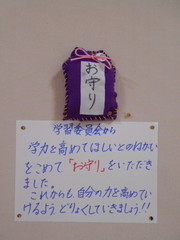 お守り
学習委員会から
学力を高めてほしいとのねがい
をこめて「お守り」をいただき
ました。
これからも、自分の力を高めてい
けるよう どりょくしていきましょう!!